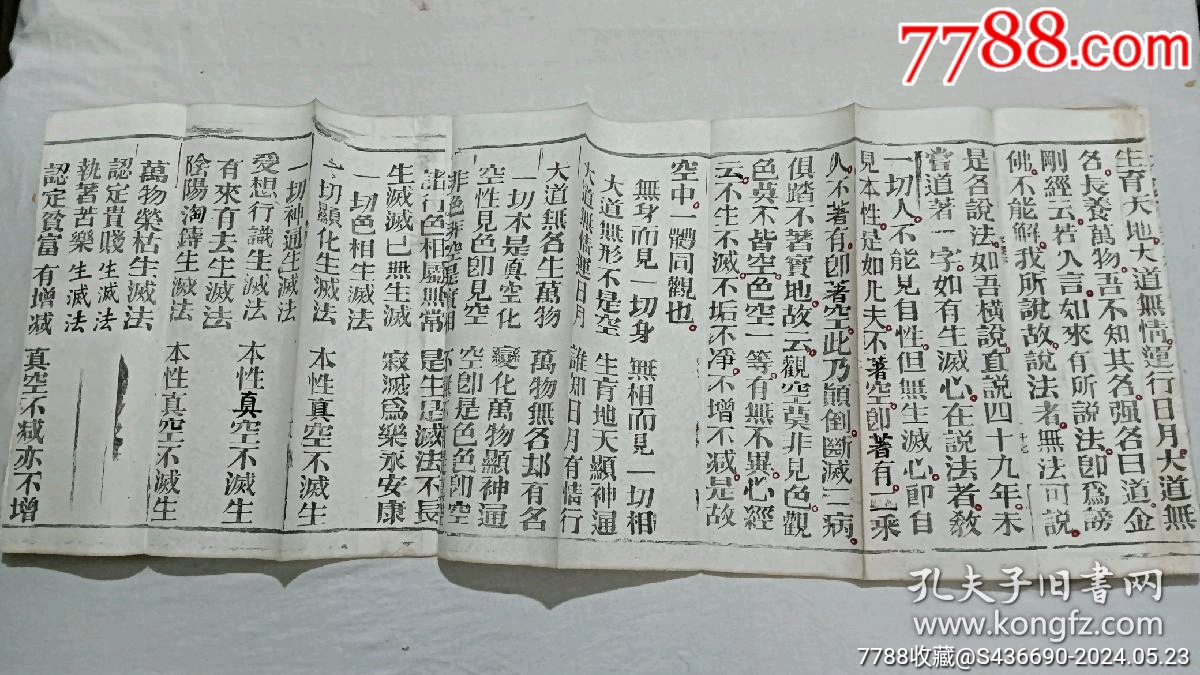 生育天地大道無情運行日月大道無
名長養萬物吾不知其名強名曰道金
剛經云若人言如來有所說法卽爲謗
佛不能解我所說故說法者無法可說
是名說法如吾橫說直說四十九年未
當道著一字如有生滅心在說法者敎
一切人不能見自性但無生滅心卽自
見本性是如凡夫不著空卽著有二乘
人不著有卽著空此乃顚倒斷滅二病
俱踏不著實地故云觀空莫非見色觀
色莫不皆空色空一等有無不異心經
云不生不滅不垢不凈不增不減是故
空中一體同觀也
無身而見一切身 無相而見一切相
大道無形不是空 生育地天顯神通
大道無情運日月 誰知日月有情行
大道無名生萬物 萬物無名却有名
一切本是真空化 變化萬物顯神通
空性見色卽見空 空卽是色色卽空
非色非空是實相
諸行色相屬無常 是生是滅法不長
生滅滅已無生滅 寂滅爲樂永安康
一切色相生滅法
一切顯化生滅法 本性真空不滅生
一切神通生滅法
受想行識生滅法 本性真空不滅生
有來有去生滅法
陰陽淘鑄生滅法 本性真空不滅生
萬物榮枯生滅法
認定貴賤生滅法
執著苦樂生滅法
認定貧富有增減 真空不減亦不增
7788.com
孔夫子旧書网
www.kongfz.com
7788收藏@S436690-2024.05.23